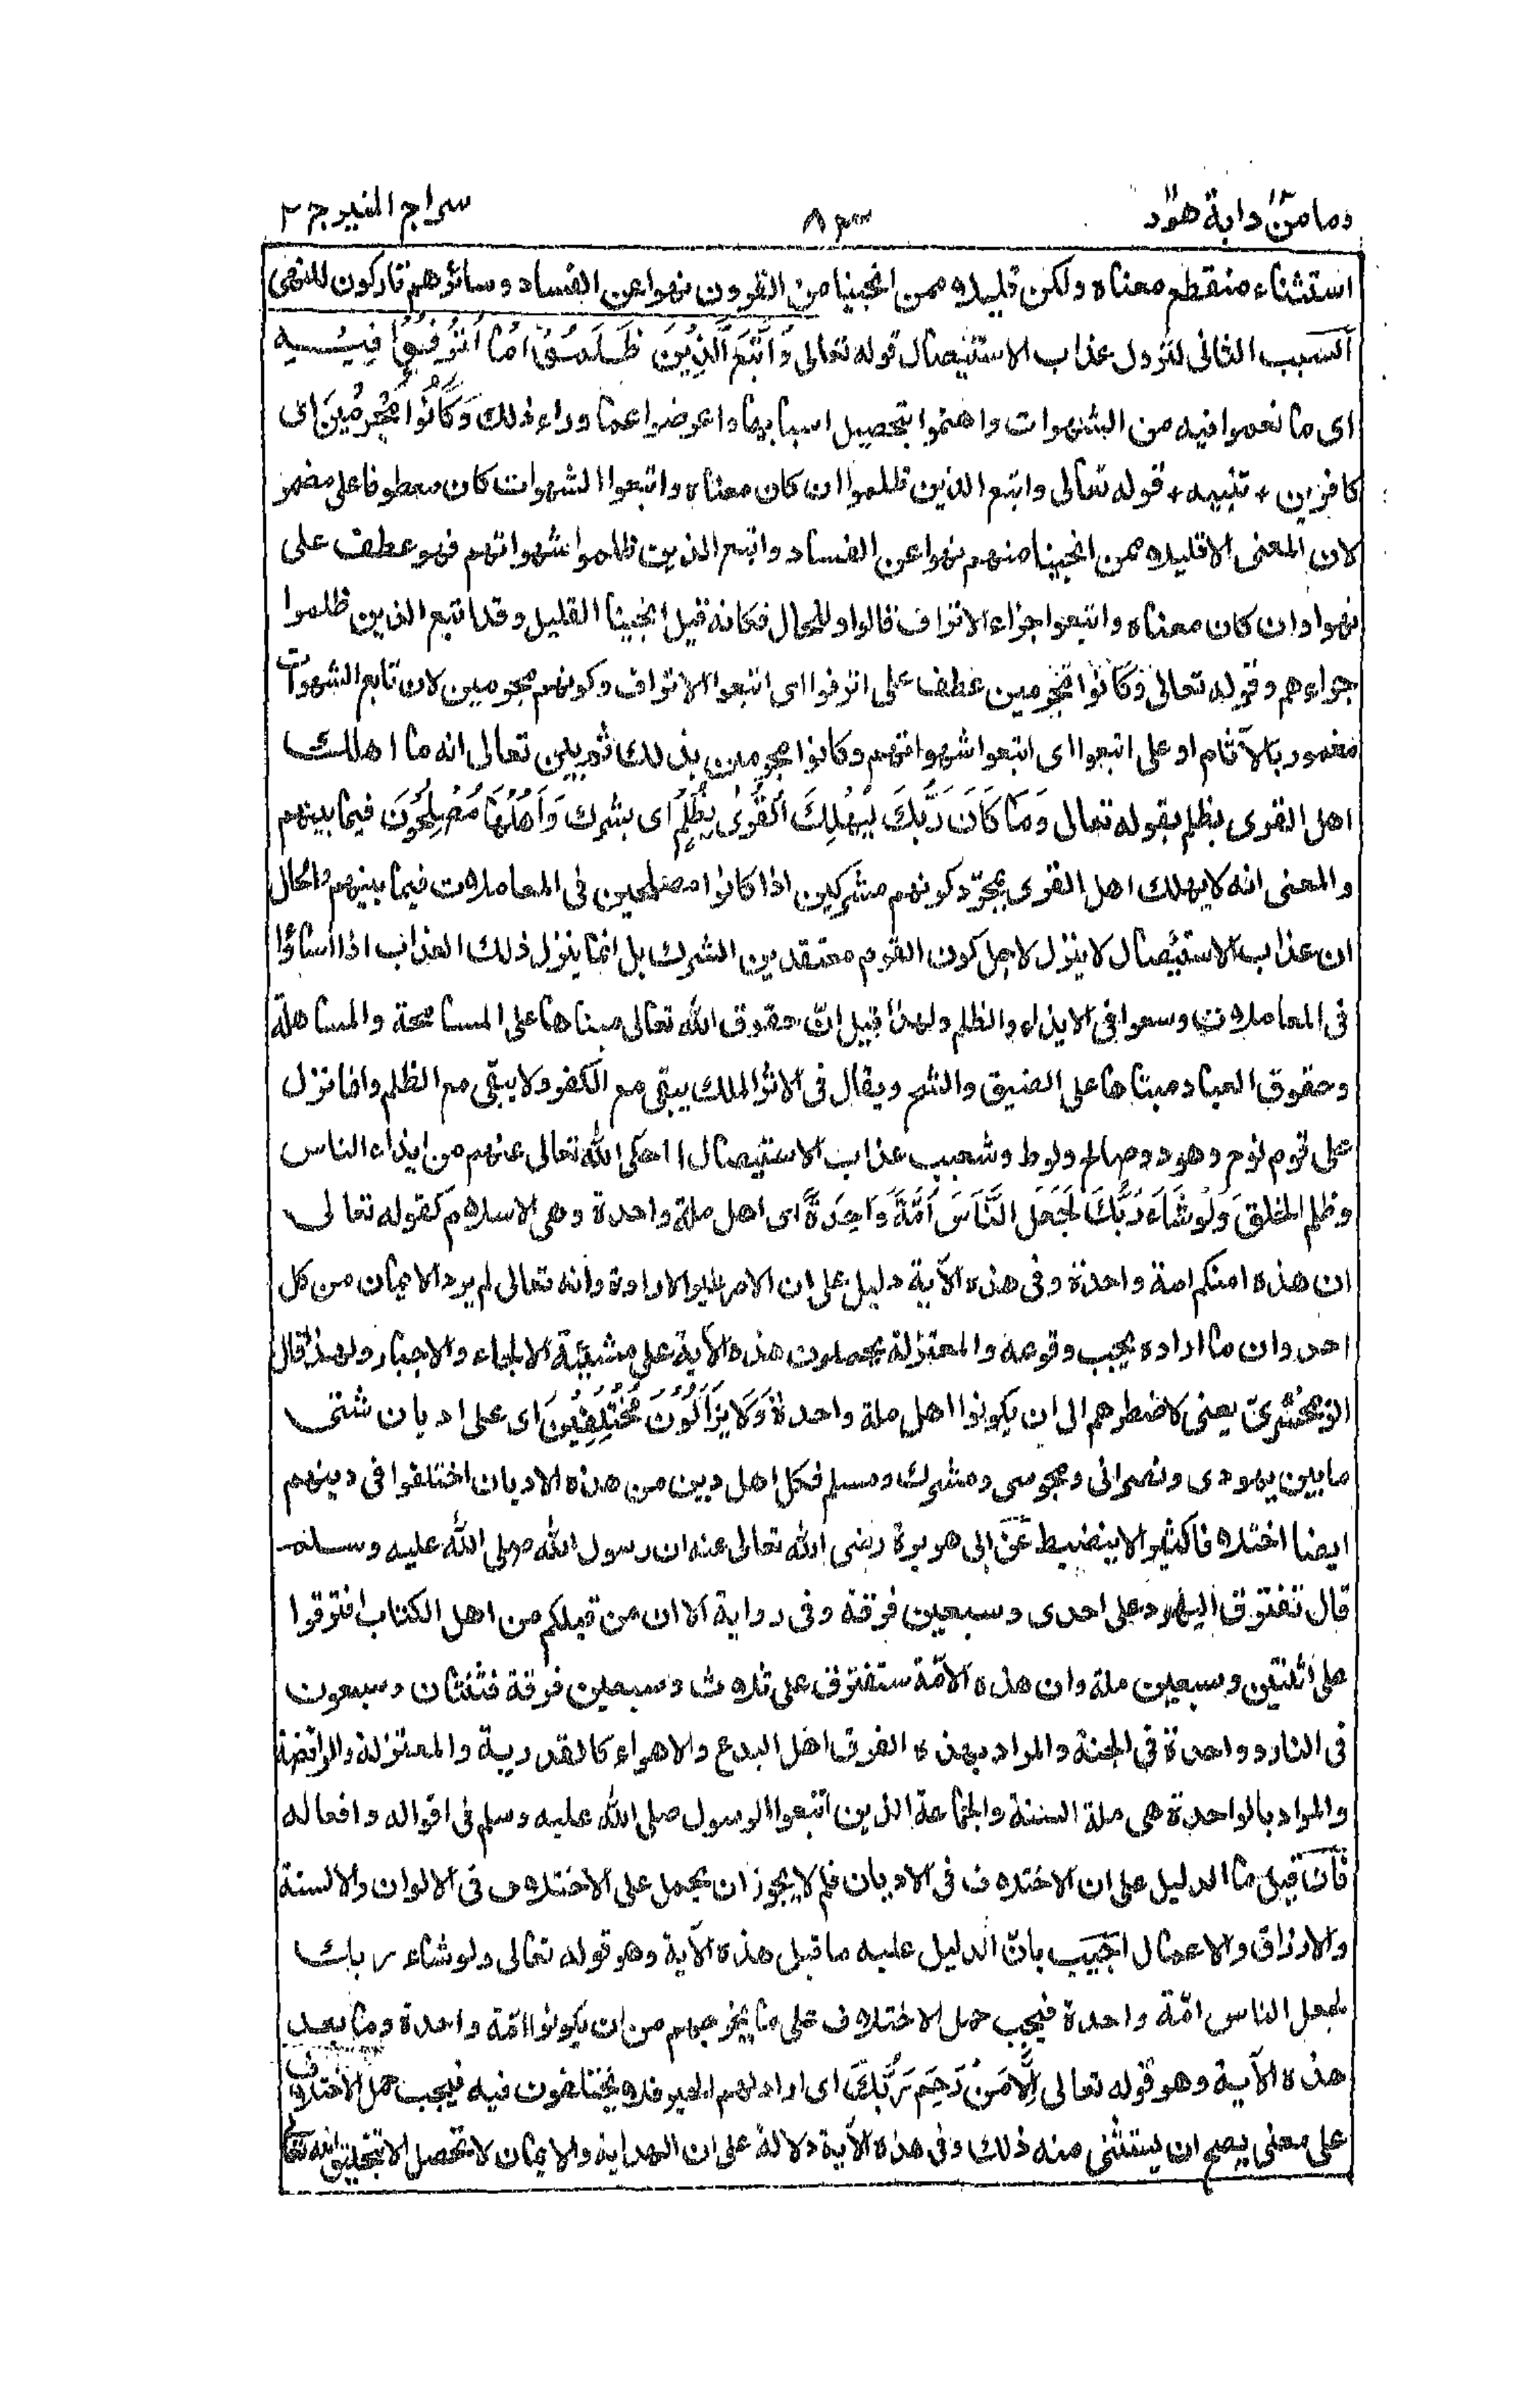 ومامن دابة هود
٨٣
سراج المنير ج ٢
استثناء منقطع معناه ولكن قليلا ممن انجينا من القرون نهوا عن الفساد وسائرهم تاركون للنهى
السبب الثانى لنزول عذاب الاستئصال قوله تعالى وَاتَّبَعَ الَّذِينَ ظَلَمُوا مَا أُتْرِفُوا فِيهِ
اى ما نعموا فيه من الشهوات واهتموا بتحصيل اسبابها واعرضوا عما وراء ذلك وَكَانُوا مُجْرِمِينَ اى
كافرين + تنبيه + قوله تعالى واتبع الذين ظلموا ان كان معناه واتبعوا الشهوات كان معطوفا على مضمر
لان المعنى الا قليلا ممن انجينا منهم نهوا عن الفساد واتبع الذين ظلموا شهواتهم فهو عطف على
نهوا وان كان معناه واتبعوا جزاء الاتراف فالواو للحال فكانه قيل انجينا القليل وقد اتبع الذين ظلموا
جزاءهم وقوله تعالى وَكَانُوا مجرمين عطف على اترفوا اى اتبعوا الاتراف وكونهم مجرمين لان تابع الشهوات
مغمور بالآثام او على اتبعوا اى اتبعوا شهواتهم وكانوا مجرمين بذلك ثم بين تعالى انه ما اهلك
اهل القرى بظلم بقوله تعالى وَمَا كَانَ رَبُّكَ لِيُهْلِكَ الْقُرَىٰ بِظُلْمٍ اى بشرك وَأَهْلُهَا مُصْلِحُونَ فيما بينهم
والمعنى انه لا يهلك اهل القرى بمجرّد كونهم مشركين اذا كانوا مصلحين فى المعاملات فيما بينهم والحال
ان عذاب الاستئصال لا ينزل لاجل كون القوم معتقدين الشرك بل انما ينزل ذلك العذاب اذا اساؤا
فى المعاملات وسعوا فى الايذاء والظلم ولهذا قيل انّ حقوق الله تعالى مبناها على المسامحة والمساهلة
وحقوق العباد مبناها على الضيق والشح ويقال فى الاثر الملك يبقى مع الكفر ولا يبقى مع الظلم وانما نزل
على قوم نوح وهود وصالح ولوط وشعيب عذاب الاستئصال لما حكى الله تعالى عنهم من ايذاء الناس
وظلم الخلق وَلَوْ شَاءَ رَبُّكَ لَجَعَلَ النَّاسَ أُمَّةً وَاحِدَةً اى اهل ملة واحدة وهى الاسلام كقوله تعالى
ان هذه امتكم امة واحدة وفى هذه الآية دليل على ان الامر غير الارادة وانه تعالى لم يرد الايمان من كل
احد وان ما اراده يجب وقوعه والمعتزلة يحملون هذه الآية على مشيّة الالجاء والاجبار ولهذا قال
الزمخشرىّ يعنى لاضطرهم الى ان يكونوا اهل ملة واحدة وَلَا يَزَالُونَ مُخْتَلِفِينَ اى على اديان شتى
ما بين يهودى ونصرانى ومجوسى ومشرك ومسلم فكل اهل دين من هذه الاديان اختلفوا فى دينهم
ايضا اختلافا كثيرا لا ينضبط عَنْ ابى هريرة رضى الله تعالى عنه ان رسول الله صلى الله عليه وسلم
قال تفترق اليهود على احدى وسبعين فرقة وفى رواية الا ان من قبلكم من اهل الكتاب افترقوا
على اثنتين وسبعين ملة وان هذه الامّة ستفترق على ثلاث وسبعين فرقة فثنتان وسبعون
فى النار وواحدة فى الجنة والمراد بهذه الفرق اهل البدع والاهواء كالقدرية والمعتزلة والرافضة
والمراد بالواحدة هى ملة السنة والجماعة الذين اتبعوا الرسول صلى الله عليه وسلم فى اقواله وافعاله
فَاِن قيل ما الدليل على ان الاختلاف فى الاديان فلم لا يجوز ان يحمل على الاختلاف فى الالوان والالسنة
والارزاق والاعمال اجيب بانّ الدليل عليه ما قبل هذه الآية وهو قوله تعالى ولو شاء ربك
لجعل الناس امّة واحدة فيجب حمل الاختلاف على ما يخرجهم من ان يكونوا امّة واحدة وما بعد
هذه الآية وهو قوله تعالى إِلَّا مَنْ رَحِمَ رَبُّكَ اى اراد لهم الخير فلا يختلفون فيه فيجب حمل الاختلاف
على معنى يصح ان يستثنى منه ذلك وفى هذه الآية دلالة على ان الهداية والايمان لا تحصل الا بتخليق الله تعالى